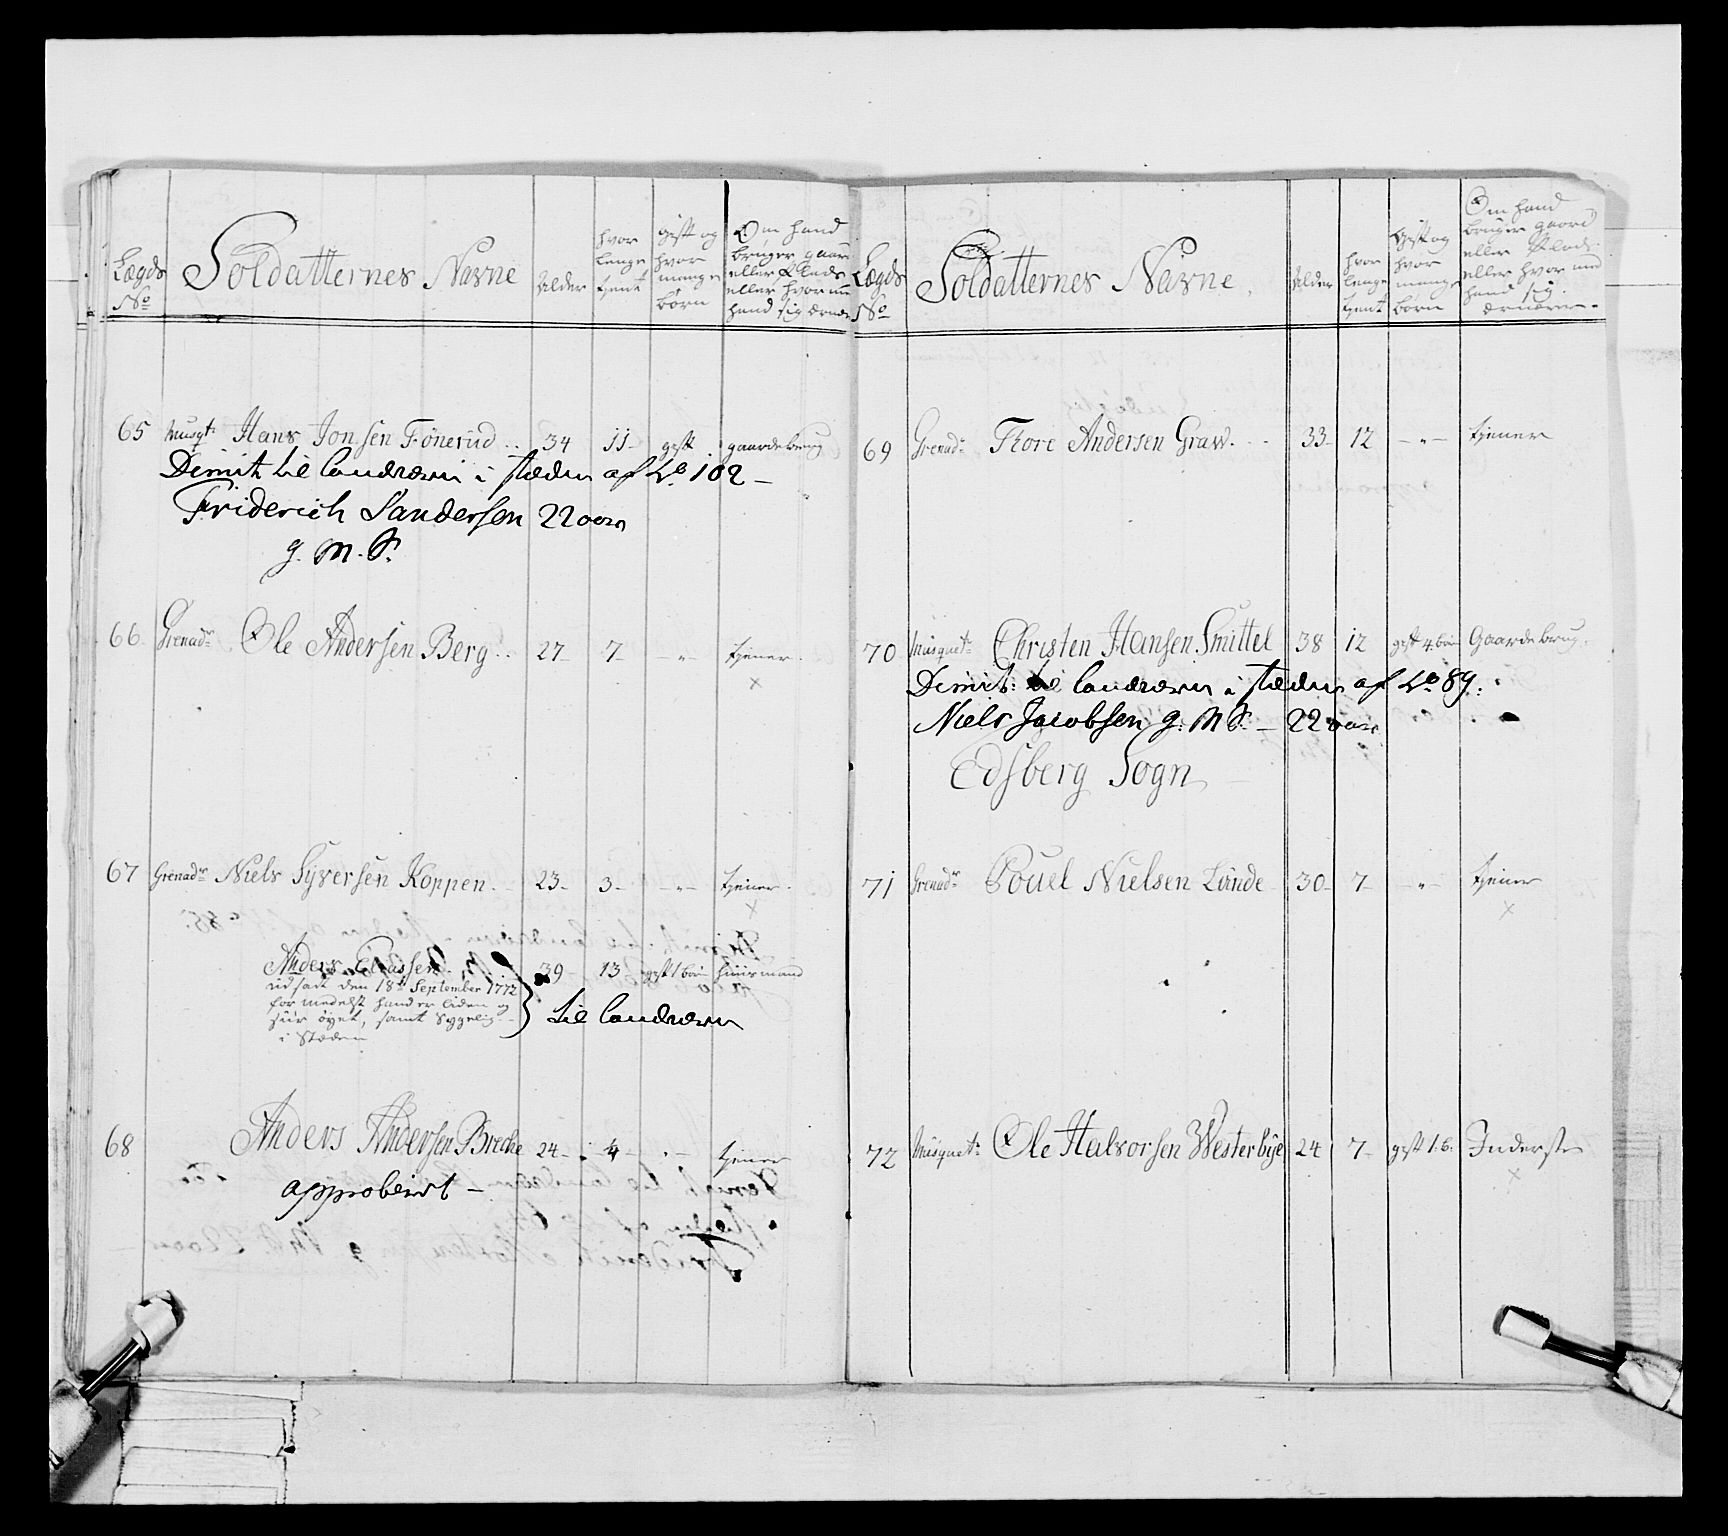 Lægds No
Soldatternes Navne
Alder
hvor lenge tient
gift og hvor mange börn
Om hand bruger gaard eller Plads eller hvor med hand sig ærnær
65 Musqt: Hans Jonsen Fönerud .. 34 11 gift gaardebrug
Dimit: til landværn i stæden af No 102 –
Friderich Sandersen 22 aar
g. M. S.
66 Grenadr Ole Andersen Berg .. 27– 7– – „ – tjener.
×
67 Grenadr Niels Syversen Koppen. 23– 3– – „ – tjener.
×
Anders 39 13 gift 1 barn huusmand
udsadt den 18de September 1772
formedelst hand er liden og
siir öyet, samt Sygelig
i Stæden
til landværn
68 Anders Andersen Breche 24– 4– – „ – tjener
approbeirt –
Lægds No
Soldatternes Navne.
Alder
hvor lenge tient
gift og hvor mange börn
Om hand bruger gaard eller Plads: eller hvor med hand sig ærnærer.
69 Grenadr Thore Andersen Graw. . . 33– 12 – „ – tjener
70 Musquetr Christen Hansen Smittel 38 12 gift 4 börn Gaardebrug.
Dimit: til landværn i stæden af No 89:
Niels Jacobsen g. M. S. – 22 aar
Edsberg Sogn
71 Grenadr Pouel Nielsen Lunde 30– 7– – „ – tjener
×
72 Musquetr Ole Halvorsen Westerbye 24 7– gift 1. b. Inderste
×